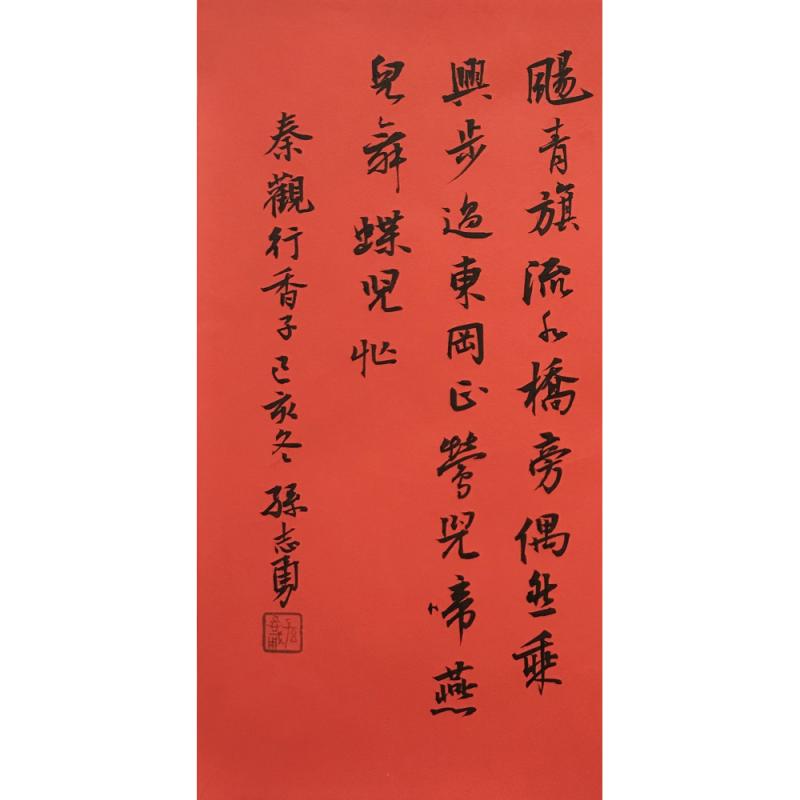 颺青旗流水橋旁偶然乘
興步過東岡正鶯兒啼燕
兒舞蝶兒忙
秦觀行香子己亥冬孫志勇